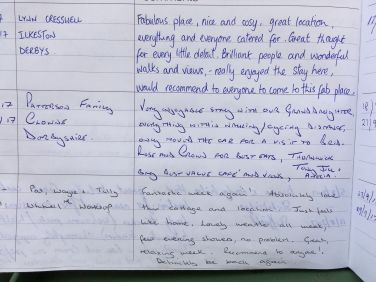 COMMENTS
LYNN CRESSWELL
Fabulous place, nice and cosy, great location,
17 ILKESTON
everything and everyone catered for. Great thought
DERBYS
for every little detail. Brilliant people and wonderful
walks and views, really enjoyed the stay here,
would recommend to everyone to come to this fab place.
17 PATTERSON FAMILY
VERY enjoyable STAY WITH OUR GRANDDAUGHTER,
17 CLOWNE
EVERYTHING WITHIN WALKING/CYCLING DISTANCE,
DERBYSHIRE.
ONLY MOVED THE CAR FOR A VISIT TO
ROSE AND CROWN FOR
BEST VALUE AND
Pat, Wayne & Tilly
Fantastic week again! Absolutely love
Worksop
this cottage and location. Just feels
like home. Lovely weather all week,
few evening showers, no problem. Great,
relaxing week. Recommend to anyone!
Definitely be back again